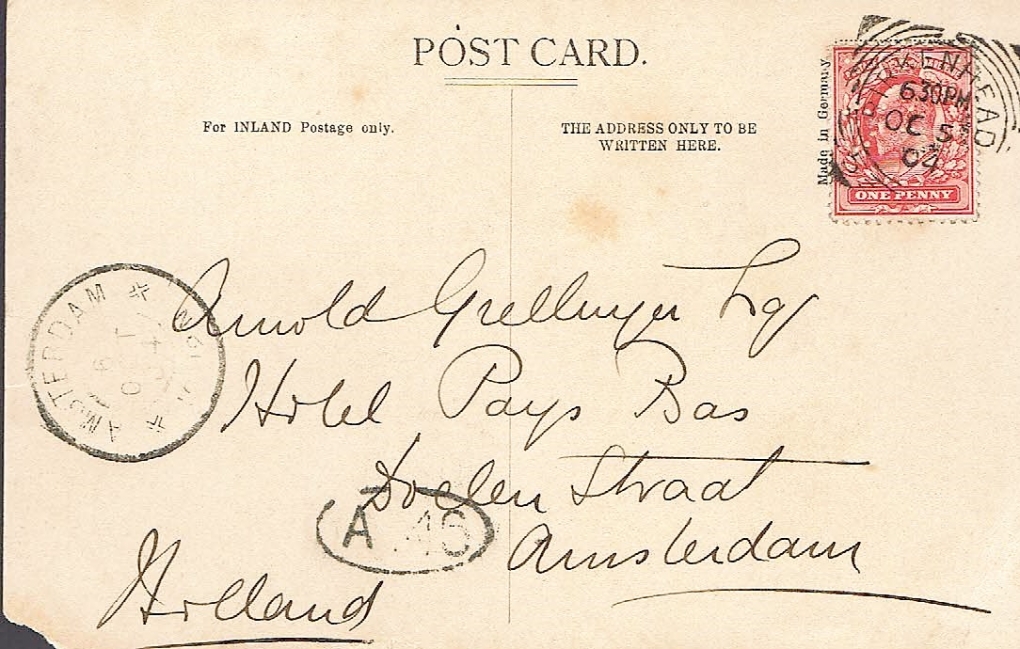 POST CARD.
For INLAND Postage only.
THE ADDRESS ONLY TO BE
WRITTEN HERE.
Made in Germany
BIRKENHEAD
630PM
OC 5
04
ONE PENNY
AMSTERDAM
Arnold Grellinger Esq
Hotel Pays Bas
Doelen Straat
A 46
Amsterdam
Holland